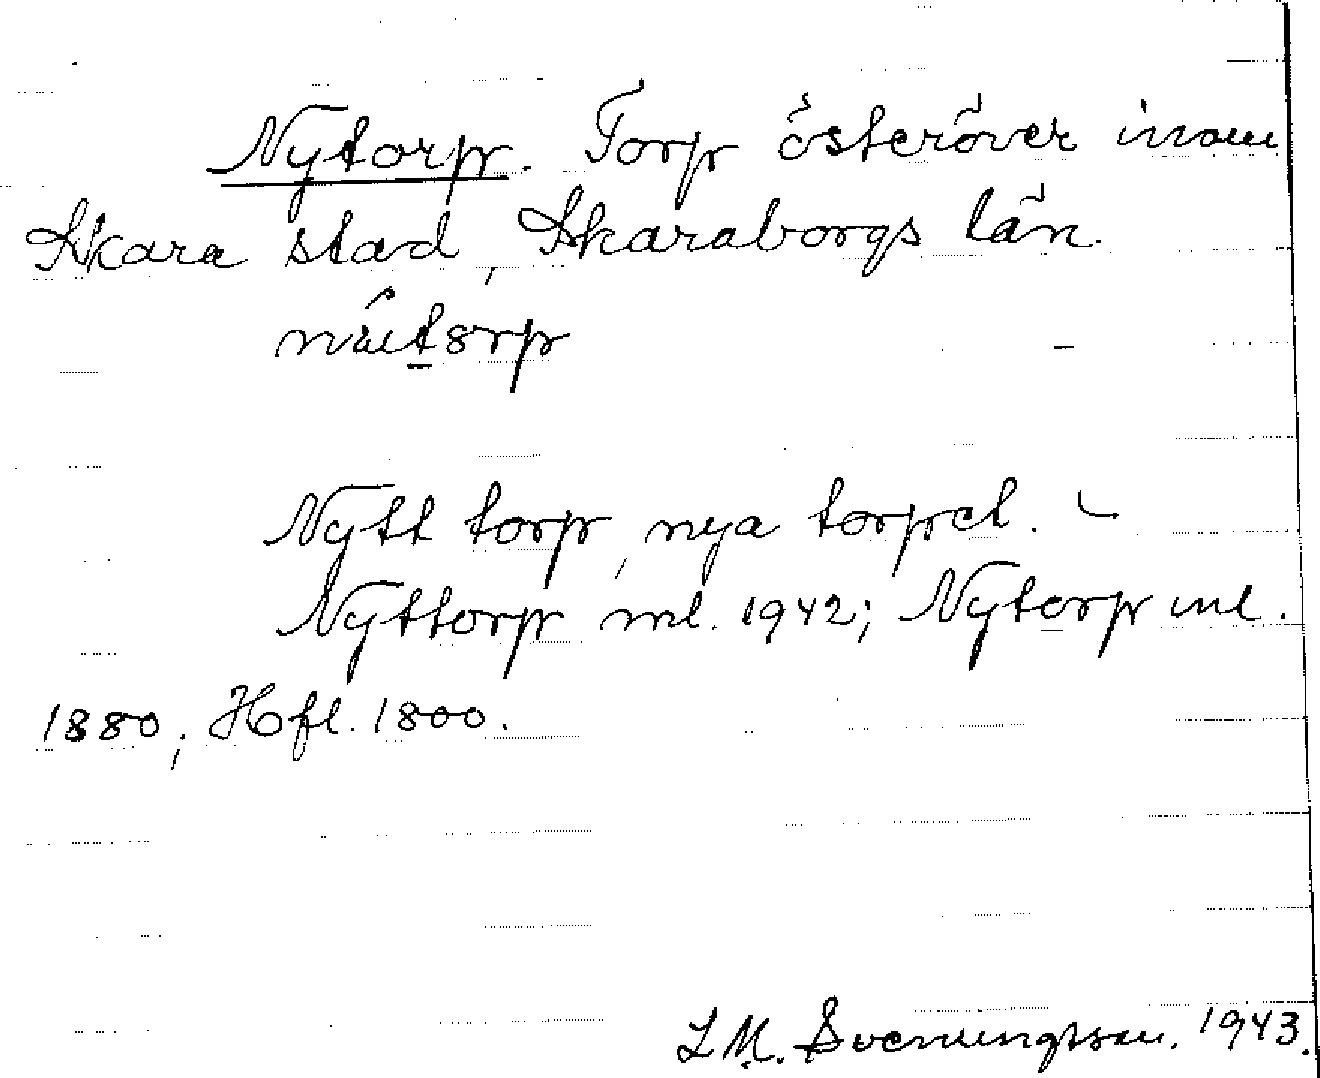 Nytorp. Torp österöver inom
Skara stad, Skaraborgs län.
Nytt torp, nya torpet. –
Nyttorp ml. 1942; Nytorp ml.
1880; Hofl. 1800.
L M. Svenungsson. 1943.